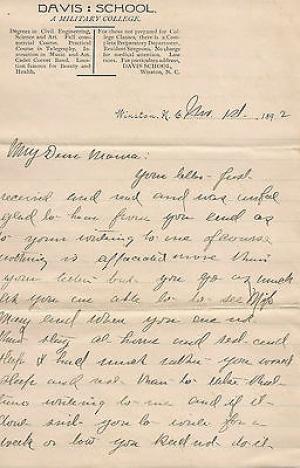 DAVIS : SCHOOL.
A MILITARY COLLEGE.
Degrees in Civil Engineering, Science and Art. Full commercial Course. Practical Course in Telegraphy. Instruction in Music and Art. Cadet Cornet Band. Location famous for Beauty and Health.
For those not prepared for College Classes, there is a Complete Preparatory Department. Resident Surgeon. No charge for medical attention. Low rates. For particulars, address
DAVIS SCHOOL,
Winston, N. C.
Winston, N. C. Nov. 1st 1892
My Dear Mama:
Your letter just
received and read and was
glad to hear from you and as
to your writing to me of course
nothing is more than
your letter but you go as much
as you are able to to see Miss
Mary and when you are not
stay at home and rest and
sleep I had much rather you would
sleep and rest than to take that
time writing to me and if it
does suit you to write for a
week or you need not do it